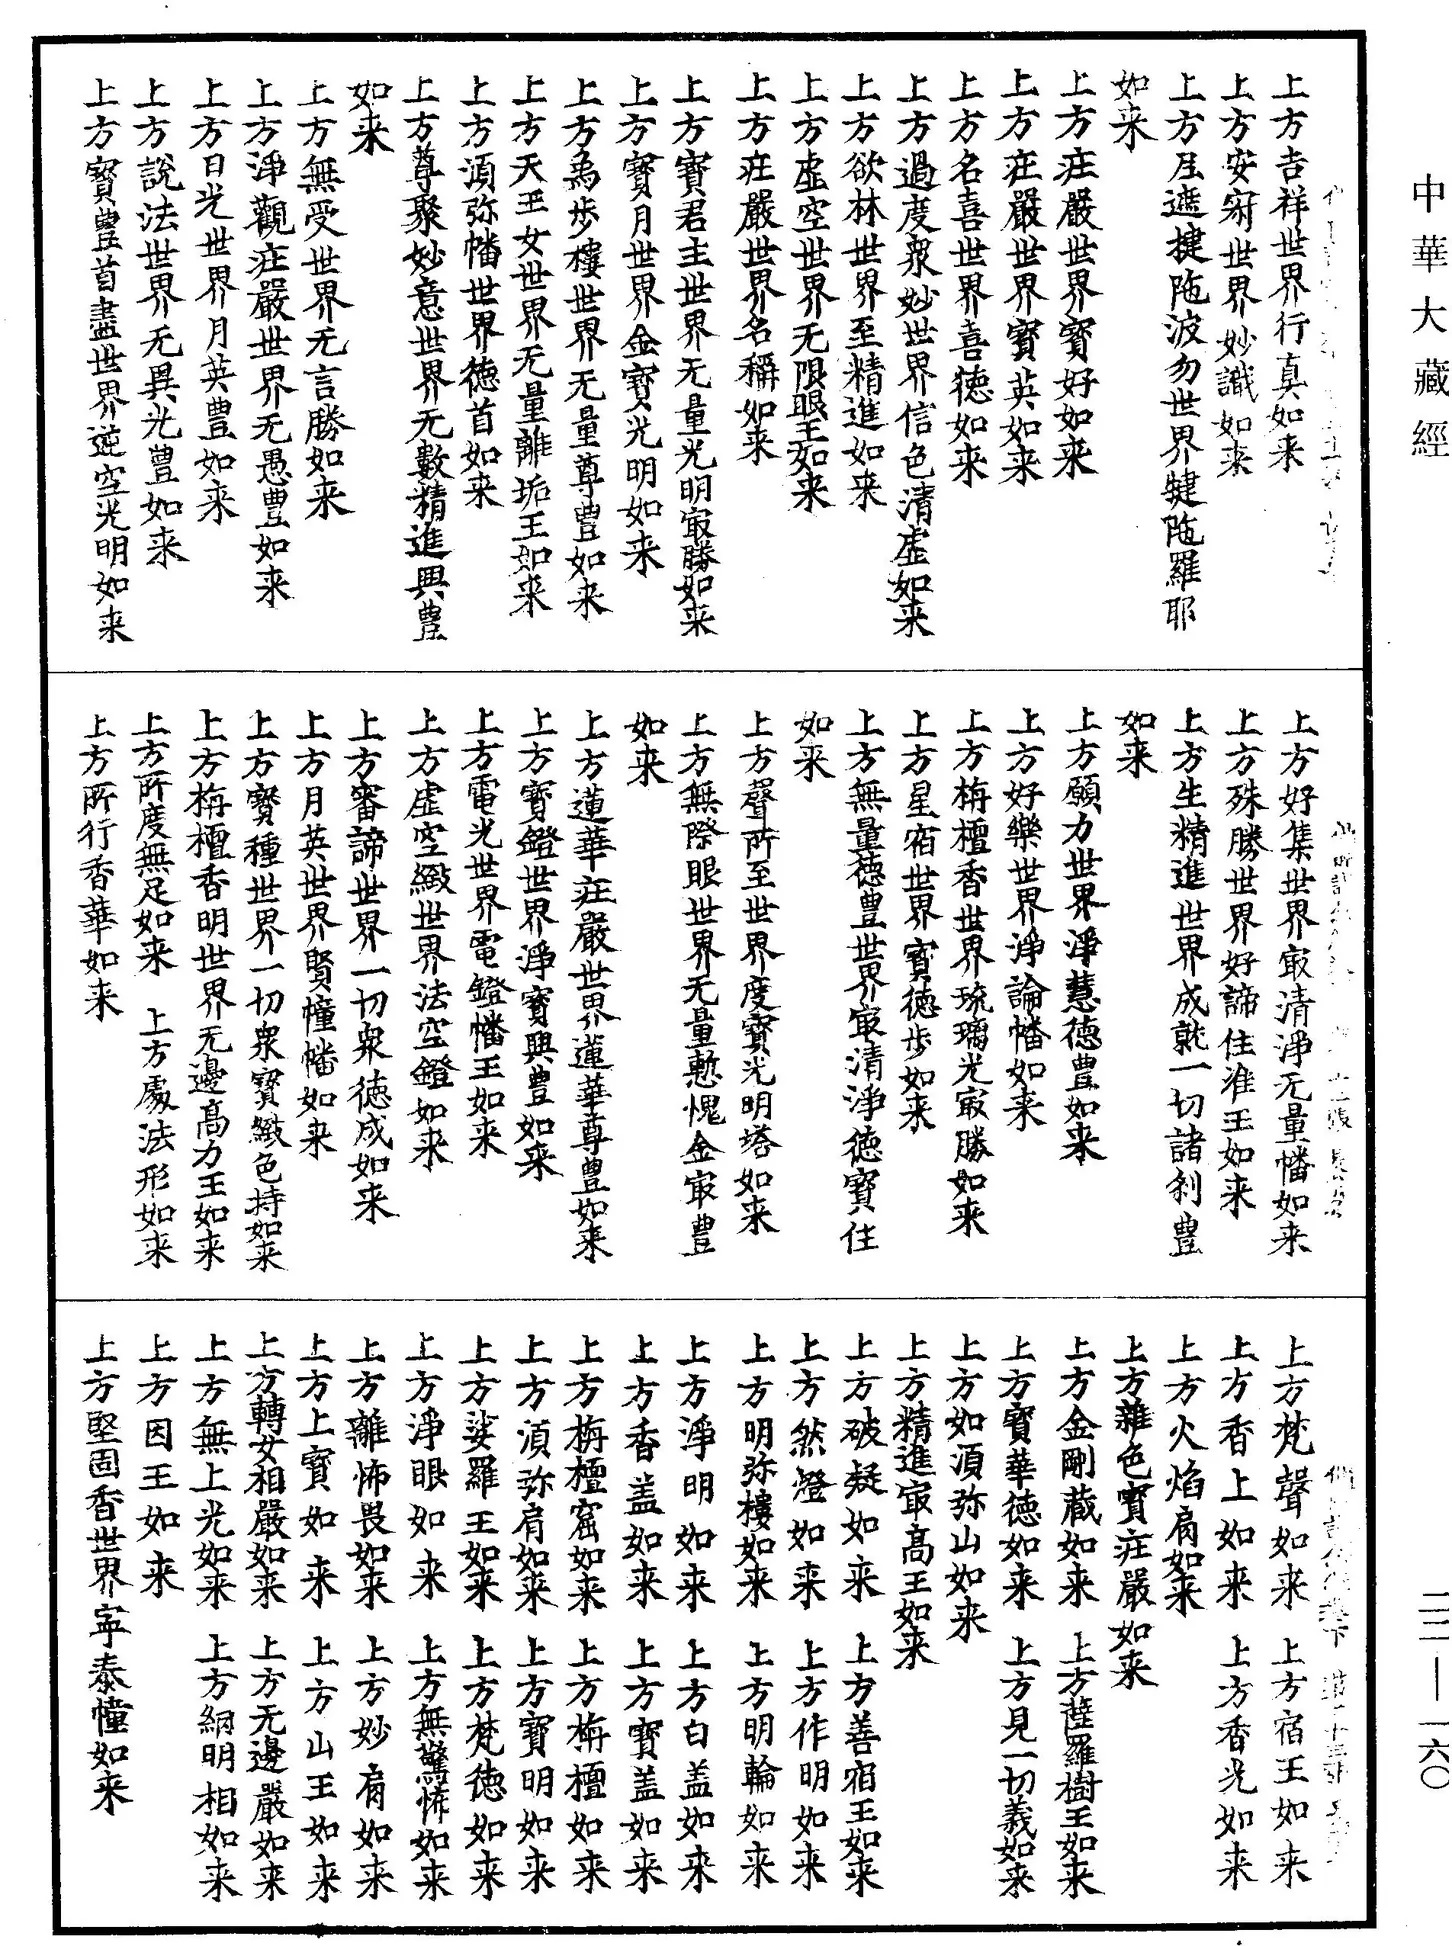 中華大藏經
上方吉祥世界行真如来
上方安宑世界妙識如来
上方㞐遮揵陁波勿世界犍陁羅耶
如来
上方疘嚴世界寳好如来
上方疘嚴世界寳英如来
上方名喜世界喜徳如来
上方過度衆妙世界信色清虚如来
上方欲林世界至精進如来
上方虚空世界无限眼王如来
上方疘嚴世界名稱如来
上方寳君主世界无量光明㝡勝如来
上方寳月世界金寳光明如来
上方爲步樓世界无量尊豊如来
上方天王女世界无量離垢王如来
上方湏弥幡世界徳首如来
上方尊聚妙意世界无數精進興豊
如来
上方無受世界无言勝如来
上方淨觀疘嚴世界无愚豊如来
上方日光世界月英豊如来
上方説法世界无異光豊如来
上方寳豊首盡世界逆空光明如来
上方好集世界㝡清淨无量幡如来
上方殊勝世界好諦住准王如来
上方生精進世界成就一切諸刹豊
如来
上方願力世界淨慧德豊如来
上方好樂世界淨論幡如来
上方栴檀香世界琉璃光㝡勝如来
上方星宿世界寳徳步如来
上方無量徳豊世界㝡清淨徳寳住
如来
上方聲所至世界度寳光明塔如来
上方無際眼世界无量慙愧金㝡豊
如来
上方蓮華疘嚴世界蓮華尊豊如来
上方寳鐙世界淨寳興豊如来
上方電光世界電鐙幡王如来
上方虚空緻世界法空鐙如来
上方審諦世界一切衆徳成如来
上方月英世界賢幢幡如来
上方寳種世界一切衆寳緻色持如来
上方栴檀香明世界无邊高力王如来
上方所度無足如来　上方處法形如来
上方所行香華如来
上方梵聲如来　上方宿王如来
上方香上如来　上方香光如来
上方火焰肩如来
上方雜色寳疘嚴如来
上方金剛蔵如来　上方薩羅樹王如来
上方寳華徳如来　上方見一切義如来
上方如湏弥山如来
上方精進㝡高王如来
上方破疑如来　上方善宿王如来
上方然燈如来　上方作明如来
上方明弥樓如来　上方明輪如来
上方淨明如来　上方白盖如来
上方香盖如来　上方寳盖如来
上方栴檀窟如来　上方栴檀如来
上方湏弥肩如来　上方寳明如来
上方娑羅王如来　上方梵徳如来
上方淨眼如来　上方無驚怖如来
上方離怖畏如来　上方妙肩如来
上方上寳如来　上方山王如来
上方轉女相嚴如来　上方无邊嚴如来
上方無上光如来　上方網明相如来
上方因王如来
上方堅固香世界寜泰幢如来
二二—一六〇